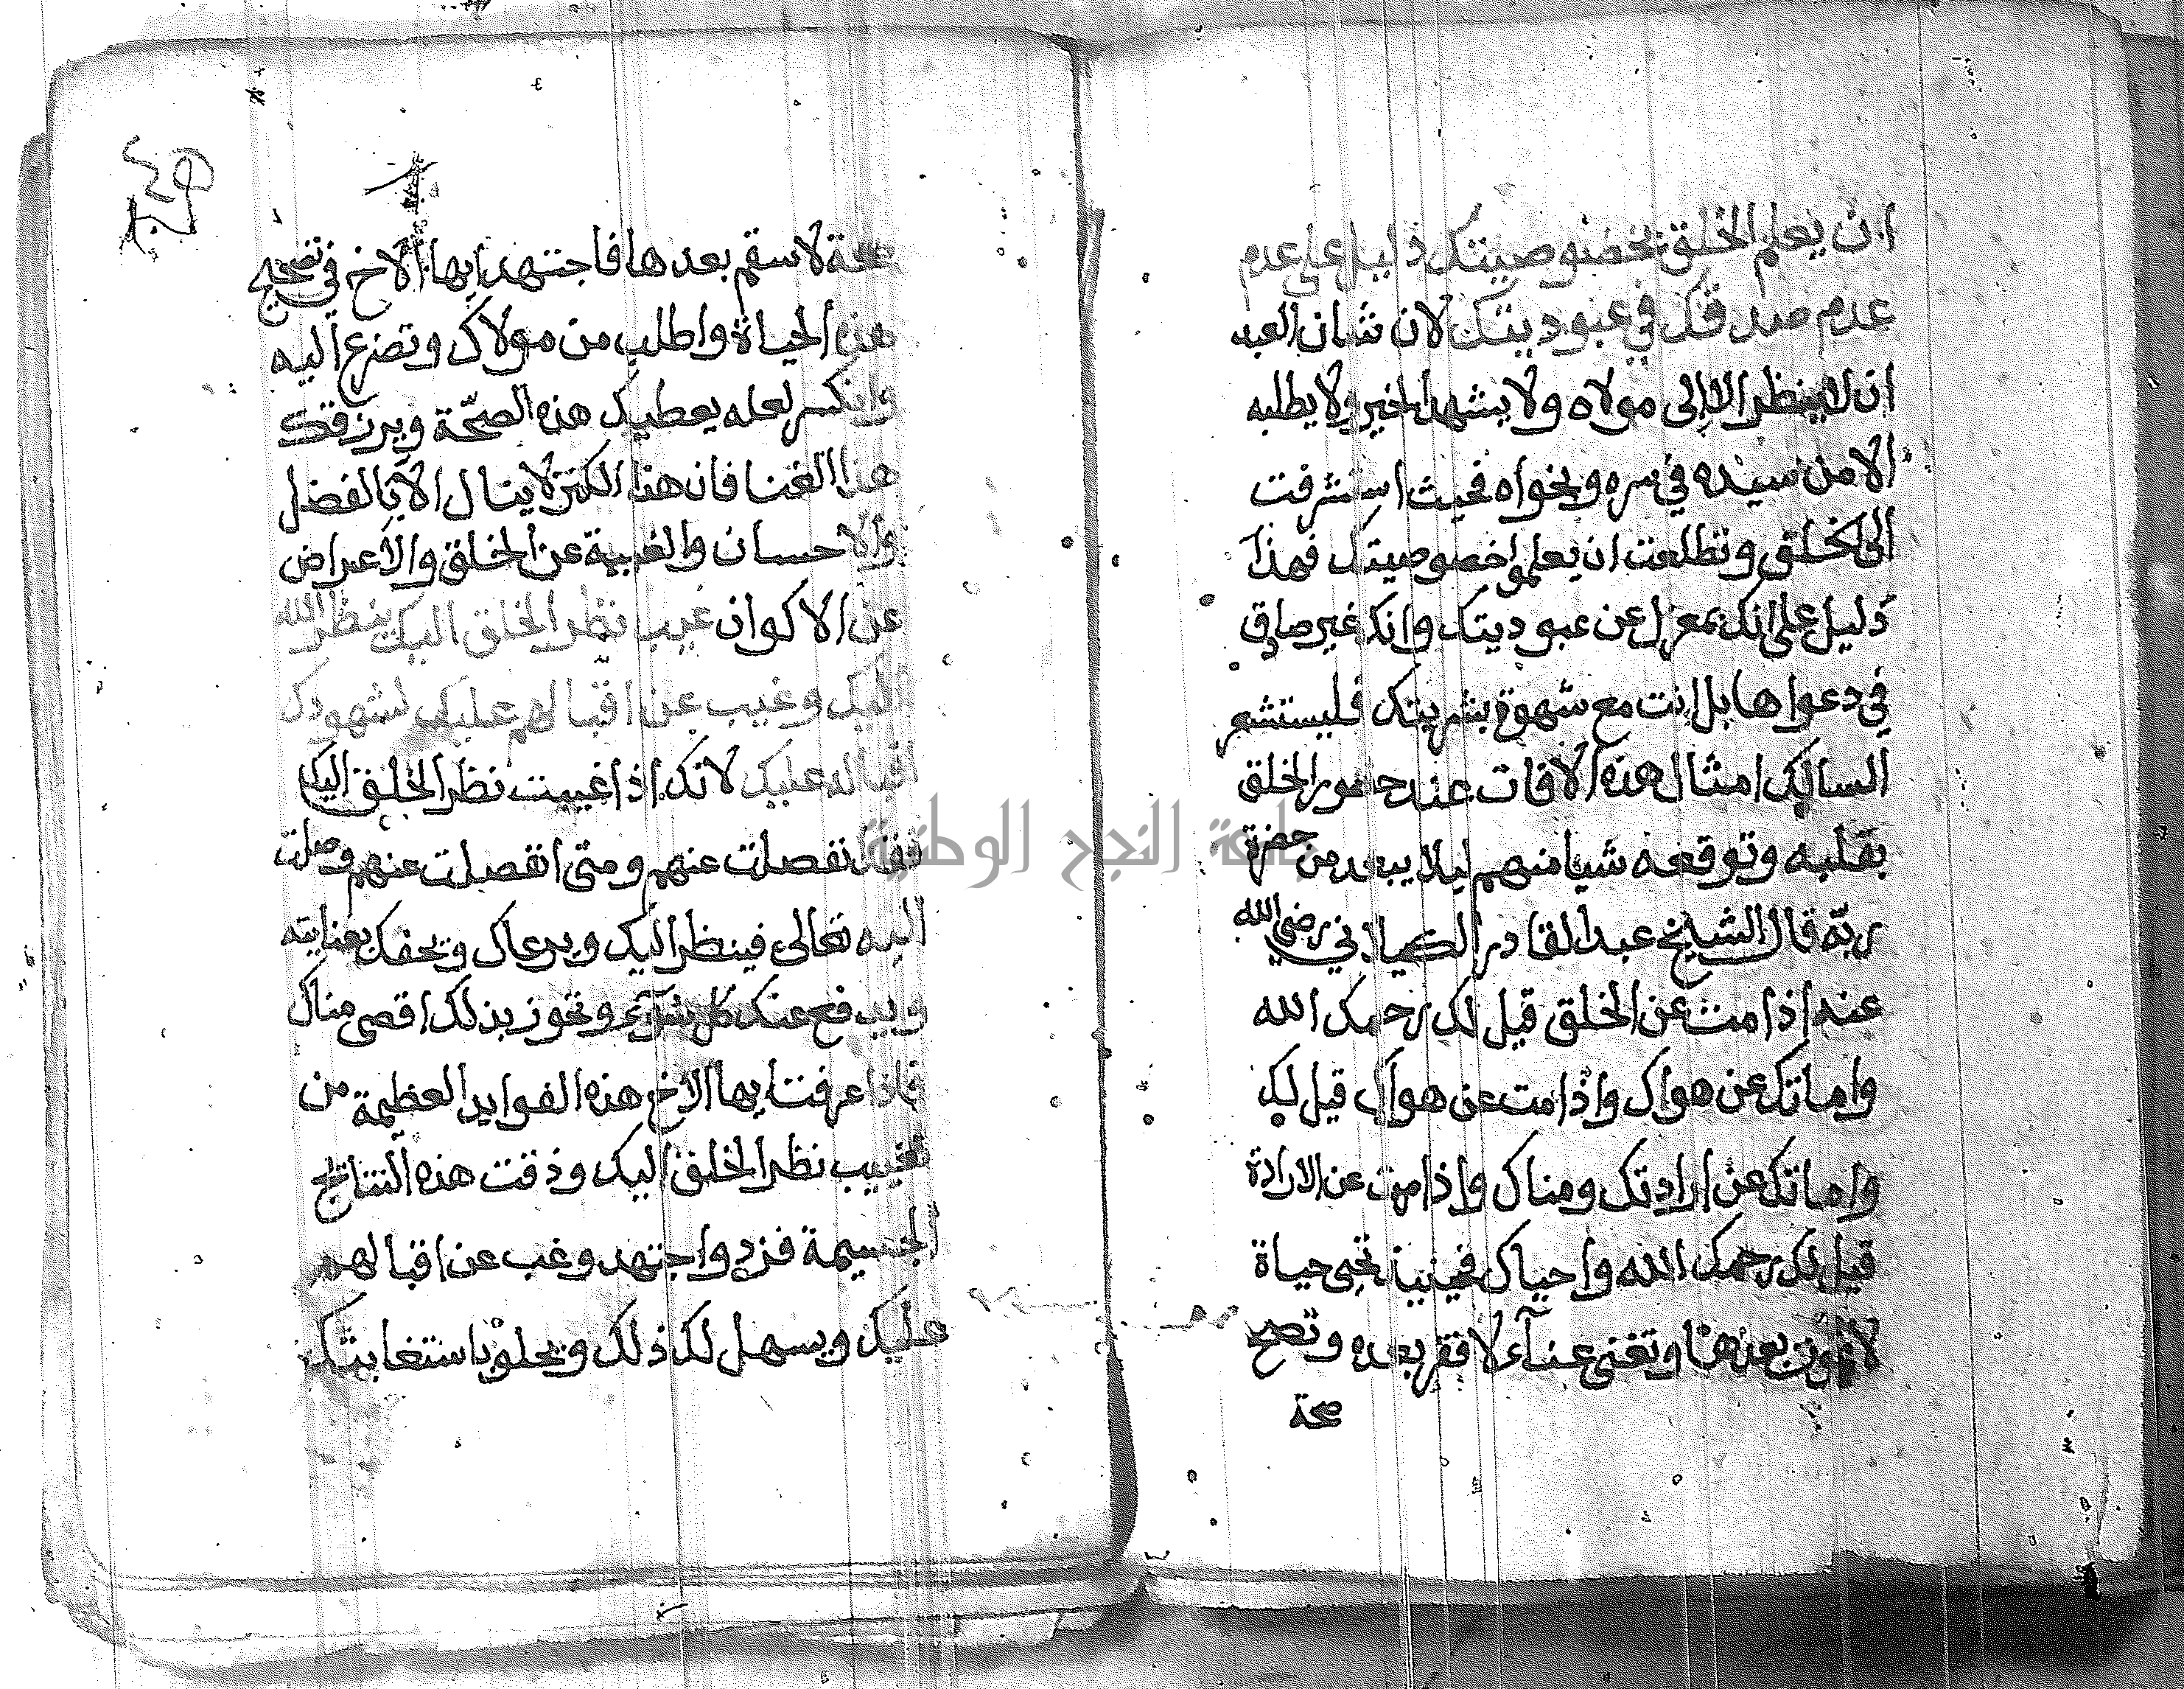 ان يعلم الخلق بخصوصيتك دليل على عدم
عدم صدقك في عبوديتك لان شان العبد
ان لا ينظر الا الى مولاه ولا يشهد الخير ولا يطلبه
الا من سيده في سره ونجواه فحيث استشرفت
الى الخلق وتطلعت ان يعلموا خصوصيتك فهذا
دليل على انك بمعزل عن عبوديتك وانك غير صادق
في دعواها بل انت مع شهوة بشريتك فليستشعر
السالك امثال هذه الافات عند حضور الخلق
بقلبه وتوقعه شيا منهم ليلا يبعد من حضرة
ربّه قال الشيخ عبد القادر الكيلاني رضي الله
عنه اذا مت عن الخلق قيل لك رحمك الله
واماتك عن هواك واذا مت عن هواك قيل لك
واماتك عن ارادتك ومناك واذا مت عن الارادة
قيل لك رحمك الله واحياك فحينيذ تحيى حياة
لا موت بعدها وتغنى غنآء لا فقر بعده وتصح
صحة
صحة لا سقم بعدها فاجتهد ايها الاخ في تصحيح
هذه الحياة واطلب من مولاك وتضرع اليه
وانكسر لعله يعطيك هذه الصحّة ويرزقك
هذا الغنا فان هذا الكنز لا ينال الا بالفضل
والاحسان والغيبة عن الخلق والاعراض
عن الاكوان غيب نظر الخلق اليك بنظر الله
اليك وغيب عن اقبالهم عليك لشهودك
اقباله عليك لانك اذا غيبت نظر الخلق اليك
فقد انفصلت عنهم ومتى انفصلت عنهم وصلت
اليه تعالى فينظر اليك ويرعاك ويحفك بعنايته
ويدفع عنك كل سوء وتحوز بذلك اقصى مناك
فاذا عرفت ايها الاخ هذه الفوايد العظيمة من
تغييب نظر الخلق اليك وذقت هذه النتائج
الجسيمة فزد واجتهد وغب عن اقبالهم
عليك ويسهل لك ذلك ويحلو باستغابتك
جامعة النجاح الوطنية